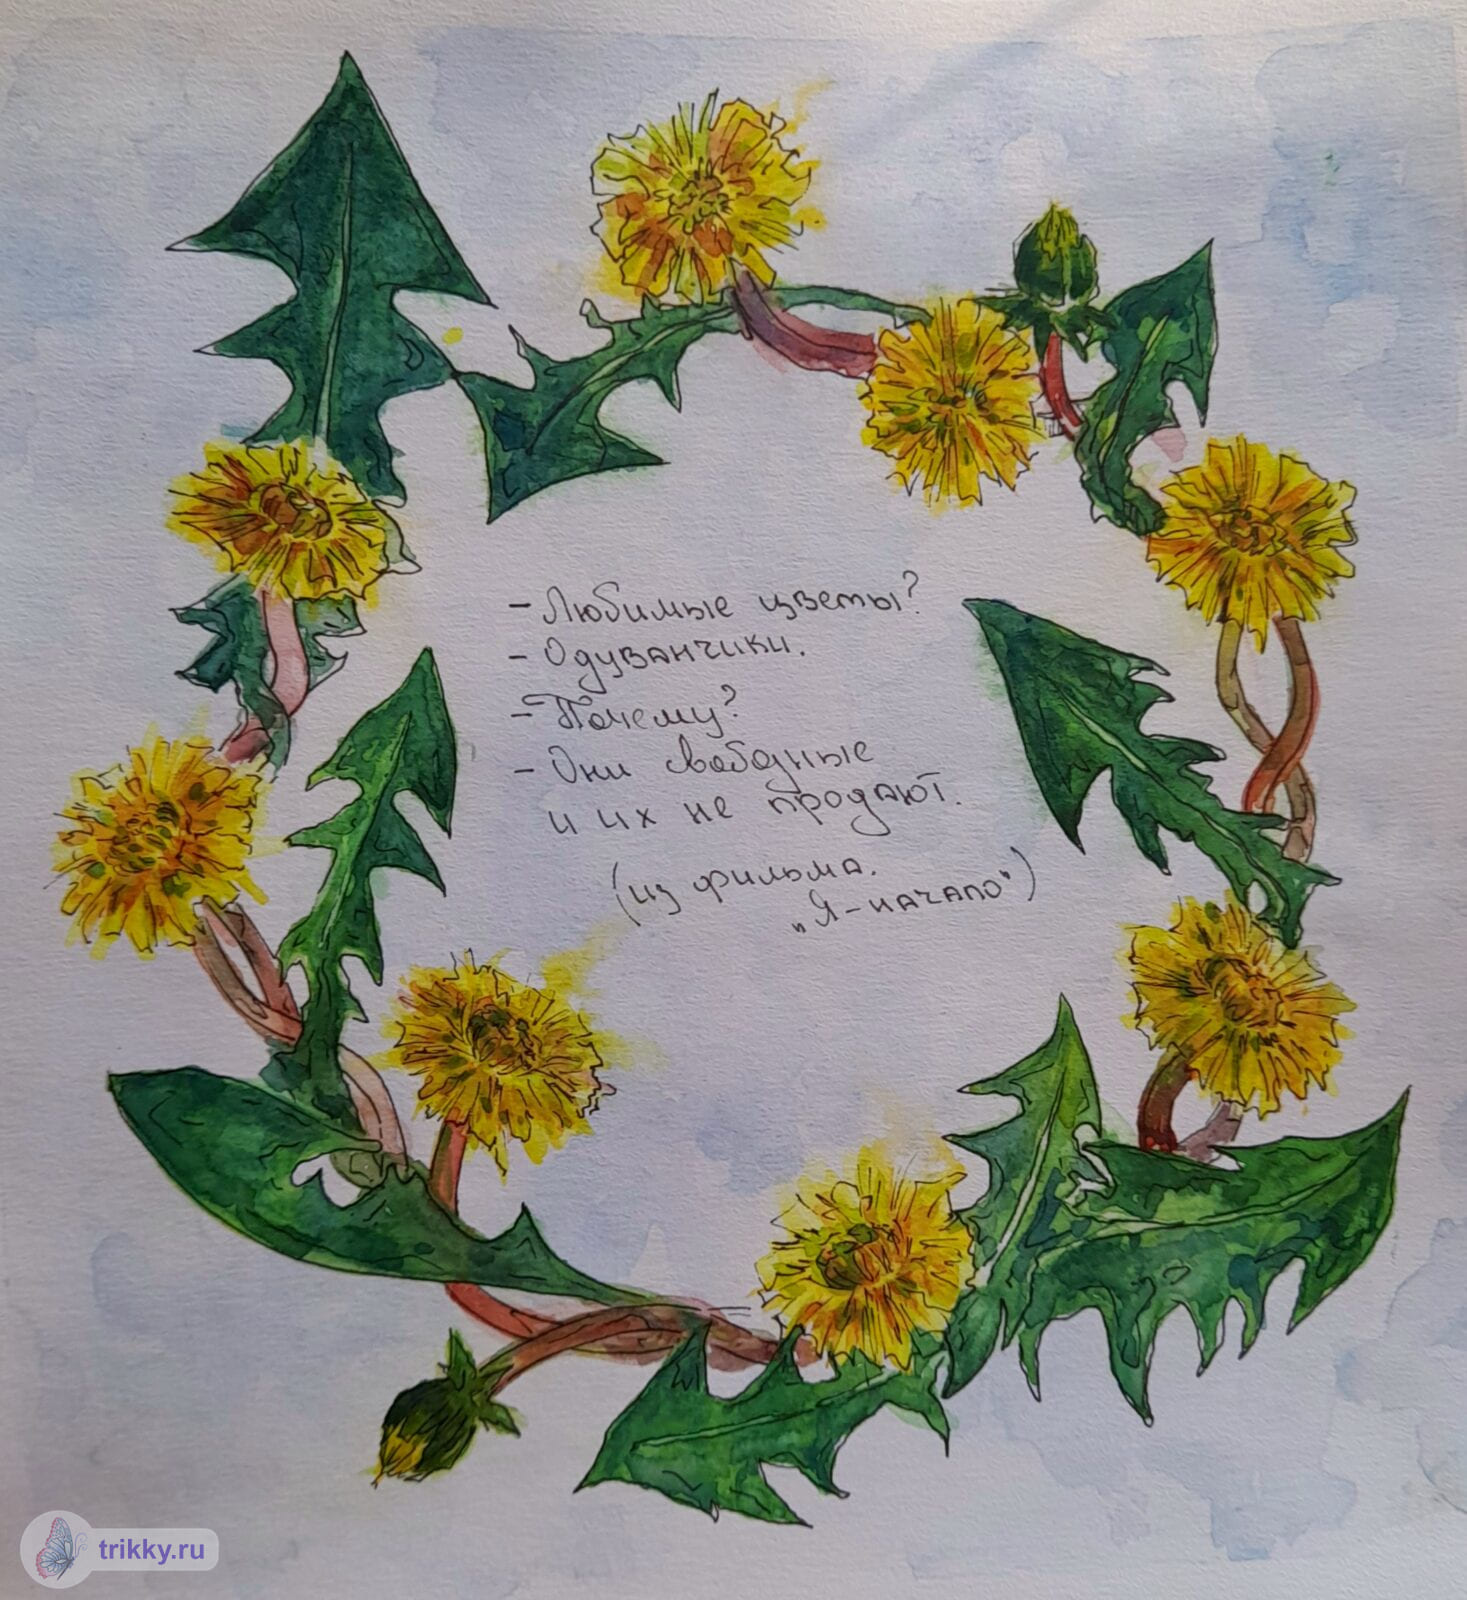 - Любимые цветы?
- Одуванчики.
- Почему?
- Они свободные
и их не продают.
(из фильма.
„Я - начало")
trikky.ru